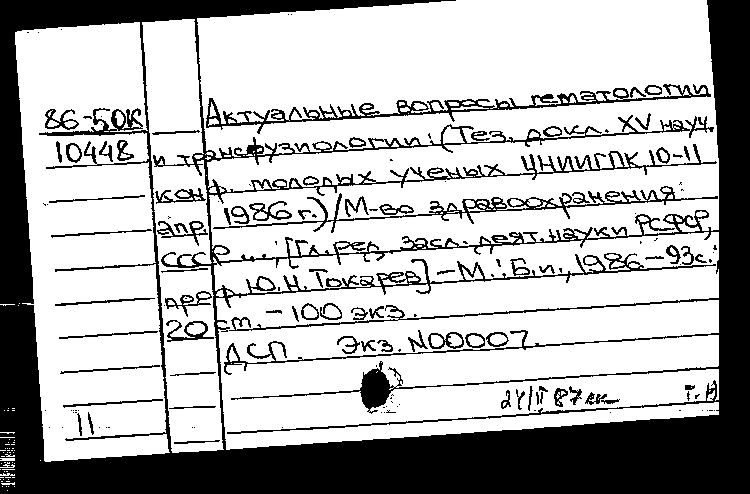 86-50К
10448
Актуальные вопросы гематологии
и трансфузиологии: (Тез. докл. XV науч.
конф. молодых ученых ЦНИИГПК, 10-11
апр. 1986 г.) / М-во здравоохранения
СССР ...; [Гл. ред. засл. деят. науки РСФСР,
проф. Ю.Н. Токарев] - М.: Б.и., 1986 - 93 с.;
20 см. - 100 экз.
ДСП. Экз. N00007.
87
Т.
11